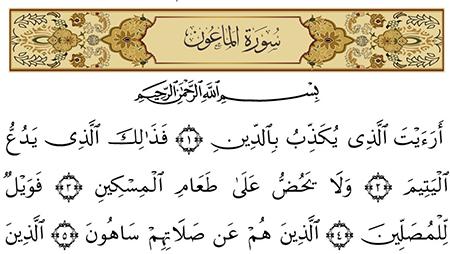 سُورَةُ المَاعُونِ
بِسْمِ ٱللَّهِ ٱلرَّحْمَٰنِ ٱلرَّحِيمِ
أَرَءَيْتَ ٱلَّذِى يُكَذِّبُ بِٱلدِّينِ ﴿١﴾ فَذَٰلِكَ ٱلَّذِى يَدُعُّ
ٱلْيَتِيمَ ﴿٢﴾ وَلَا يَحُضُّ عَلَىٰ طَعَامِ ٱلْمِسْكِينِ ﴿٣﴾ فَوَيْلٌ
لِّلْمُصَلِّينَ ﴿٤﴾ ٱلَّذِينَ هُمْ عَن صَلَاتِهِمْ سَاهُونَ ﴿٥﴾ ٱلَّذِينَ